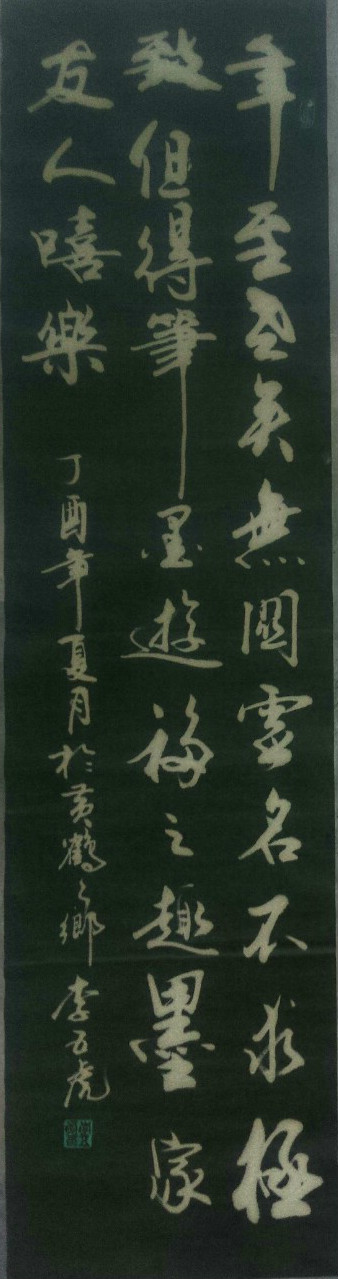 年至玄矣無圖虛名不求極
致但得筆墨遊福之趣墨家
友人嘻樂
丁酉年夏月於黃鶴之鄉 李五虎